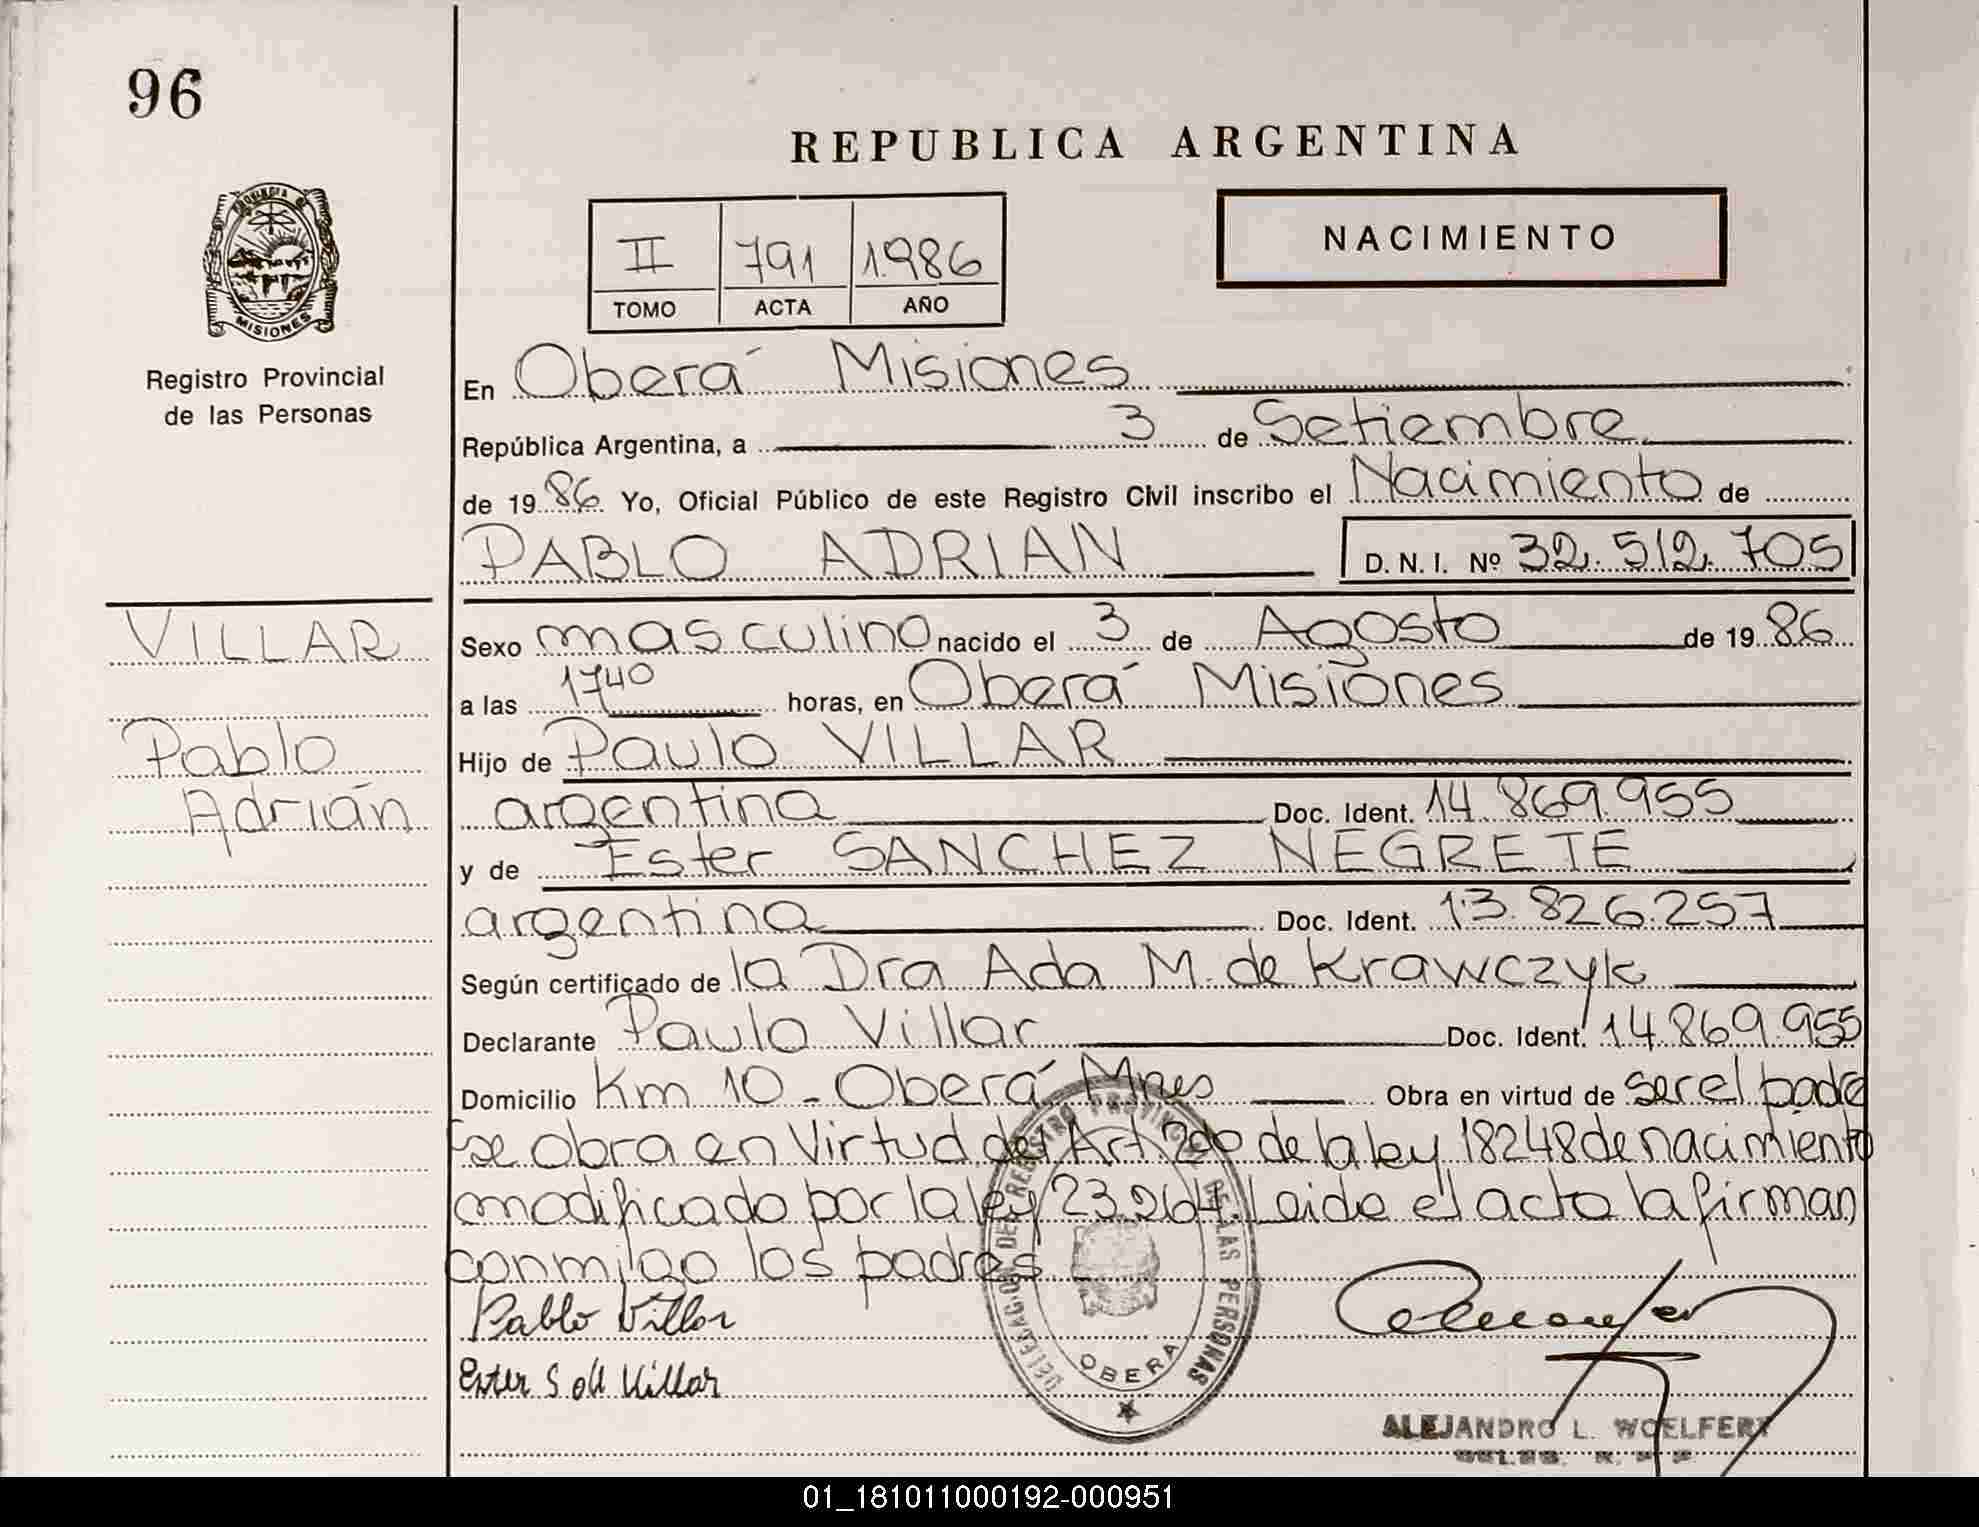 96
REPUBLICA ARGENTINA
PROVINCIA DE
MISIONES
II 791 1.986
TOMO ACTA AÑO
NACIMIENTO
Registro Provincial
de las Personas
En Oberá Misiones
República Argentina, a 3 de Setiembre
de 19 86 Yo, Oficial Público de este Registro Civil inscribo el Nacimiento de
PABLO ADRIAN D. N. I. Nº 32.512.705
VILLAR
Pablo
Adrián
Sexo masculino nacido el 3 de Agosto de 19 86
a las 1740 horas, en Oberá Misiones
Hijo de Paulo VILLAR
argentina Doc. Ident. 14.869.955
y de Ester SANCHEZ NEGRETE
argentina Doc. Ident. 13.826.257
Según certificado de la Dra Ada M. de Krawczyk
Declarante Paulo Villar Doc. Ident. 14.869.955
Domicilio Km 10 - Oberá Mnes Obra en virtud de ser el padre
se obra en Virtud del Art. 2do de la ley 18248 de nacimiento
modificado por la ley 23.264. Leido el acto la firman
conmigo los padres
Pablo Villar
Ester S de Villar
DELEGACION DEL REGISTRO PROVINCIAL DE LAS PERSONAS
OBERA
ALEJANDRO L. WOELFERT
01_181011000192-000951